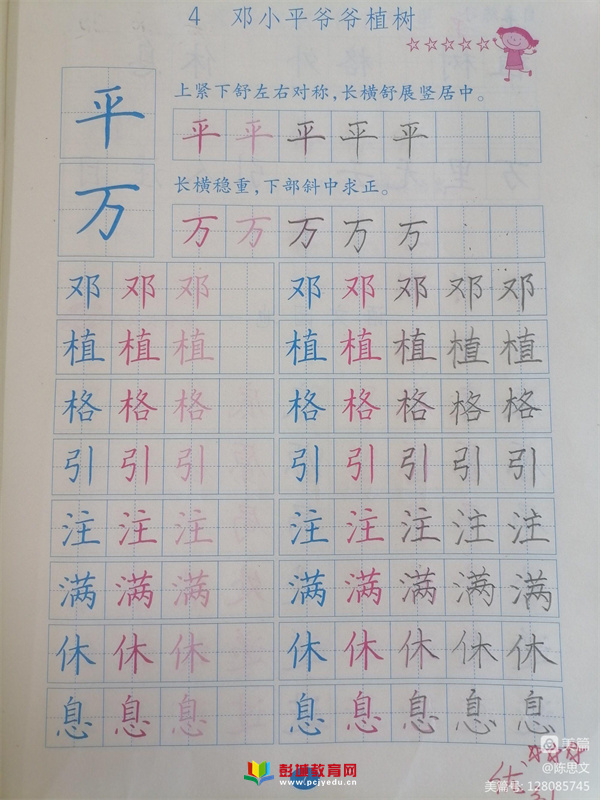 4 邓小平爷爷植树
平 上紧下舒左右对称,长横舒展竖居中。
平 平 平 平 平
万 长横稳重,下部斜中求正。
万 万 万 万 万
邓 邓 邓 邓 邓 邓 邓 邓
植 植 植 植 植 植 植 植
格 格 格 格 格 格 格 格
引 引 引 引 引 引 引 引
注 注 注 注 注 注 注 注
满 满 满 满 满 满 满 满
休 休 休 休 休 休 休 休
息 息 息 息 息 息 息 息
美篇
@陈思文
彭城教育网
www.pce.net.cn
美篇号: 128085745